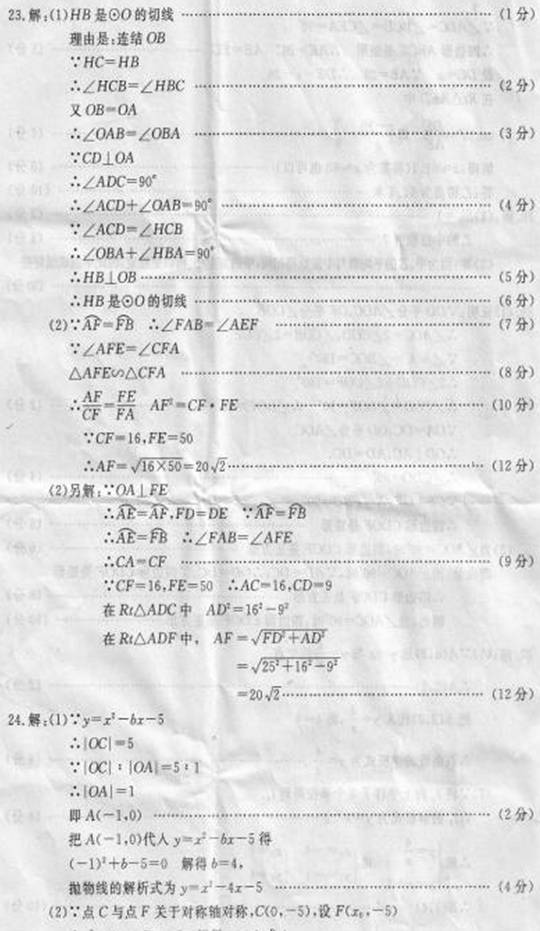 23.解:(1)HB是⊙O的切线 ………… (1分)
理由是:连结OB
∵HC=HB
∴∠HCB=∠HBC ………… (2分)
又OB=OA
∴∠OAB=∠OBA ………… (3分)
∵CD⊥OA
∴∠ADC=90°
∴∠ACD+∠OAB=90° ………… (4分)
∵∠ACD=∠HCB
∴∠OBA+∠HBA=90°
∴HB⊥OB ………… (5分)
∴HB是⊙O的切线 ………… (6分)
(2)∵A͡F=F͡B ∴∠FAB=∠AEF ………… (7分)
∵∠AFE=∠CFA
△AFE∽△CFA ………… (8分)
∴AF/CF=FE/FA AF²=CF·FE ………… (10分)
∵CF=16,FE=50
∴AF=√(16×50)=20√2 ………… (12分)
(2)另解:∵OA⊥FE
∴A͡E=A͡F,FD=DE ∵A͡F=F͡B
∴A͡E=F͡B ∴∠FAB=∠AFE
∴CA=CF ………… (9分)
∵CF=16,FE=50 ∴AC=16,CD=9
在Rt△ADC中 AD²=16²-9²
在Rt△ADF中, AF=√(FD²+AD²)
=√(25²+16²-9²)
=20√2 ………… (12分)
24.解:(1)∵y=x²-bx-5
∴|OC|=5
∵|OC|:|OA|=5:1
∴|OA|=1
即A(-1,0) ………… (2分)
把A(-1,0)代人y=x²-bx-5得
(-1)²+b-5=0 解得b=4,
抛物线的解析式为y=x²-4x-5 ………… (4分)
(2)∵点C与点F关于对称轴对称,C(0,-5),设F(x₀,-5)